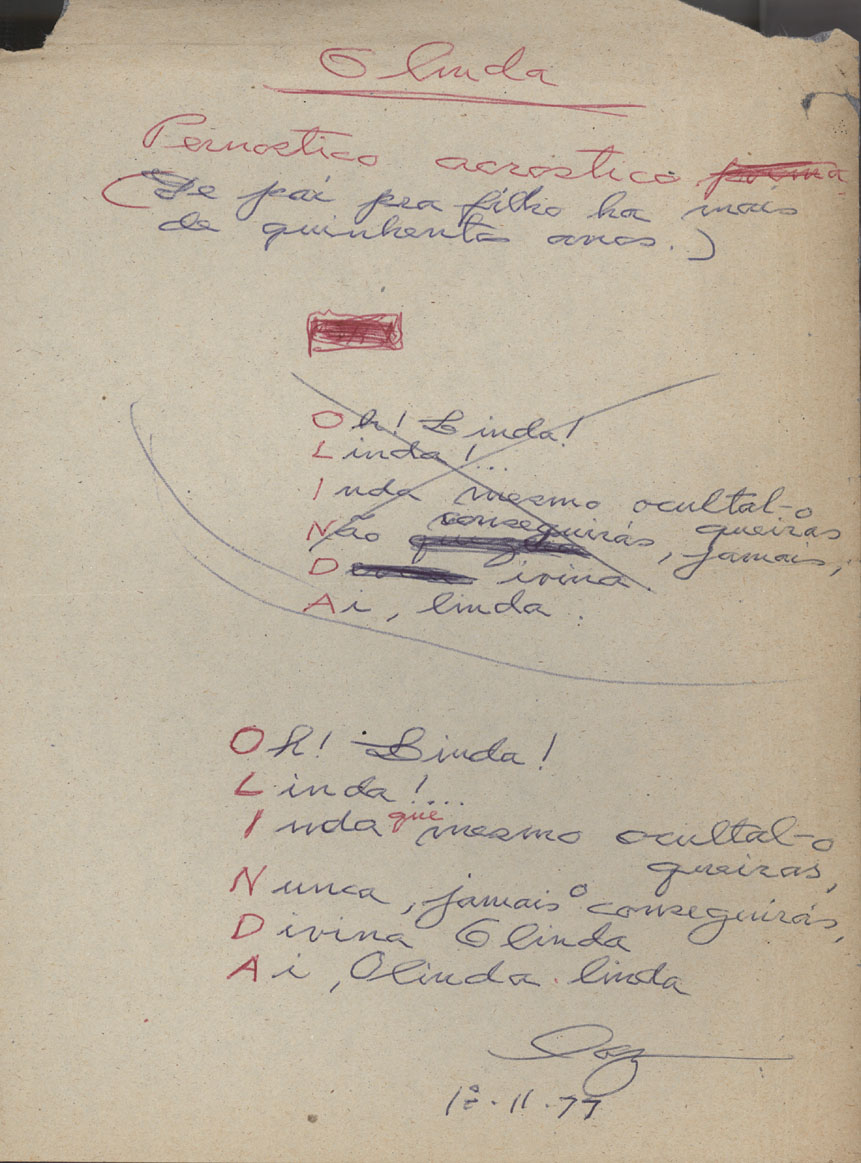 Olinda
Pernostico acróstico
(De pai pra filho ha mais
de quinhentos anos.)
Oh! Linda!
Linda!...
Inda mesmo ocultal-o
queiras
Não conseguirás, jamais,
Divina
Ai, linda.
Oh! Linda!
Linda!...
Inda que mesmo ocultal-o
queiras,
Nunca, jamais o conseguirás,
Divina Olinda
Ai, Olinda linda
1º-11-77